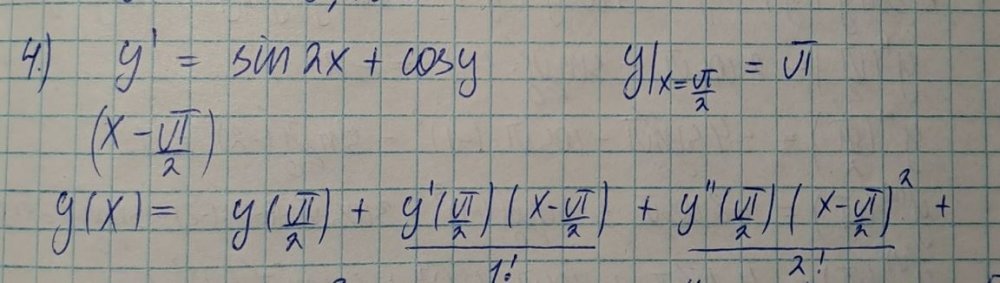 4.) y' = sin 2x + cos y    y|x=π/2 = π
(x - π/2)
y(x) = y(π/2) + y'(π/2)(x - π/2)/1! + y''(π/2)(x - π/2)²/2! +